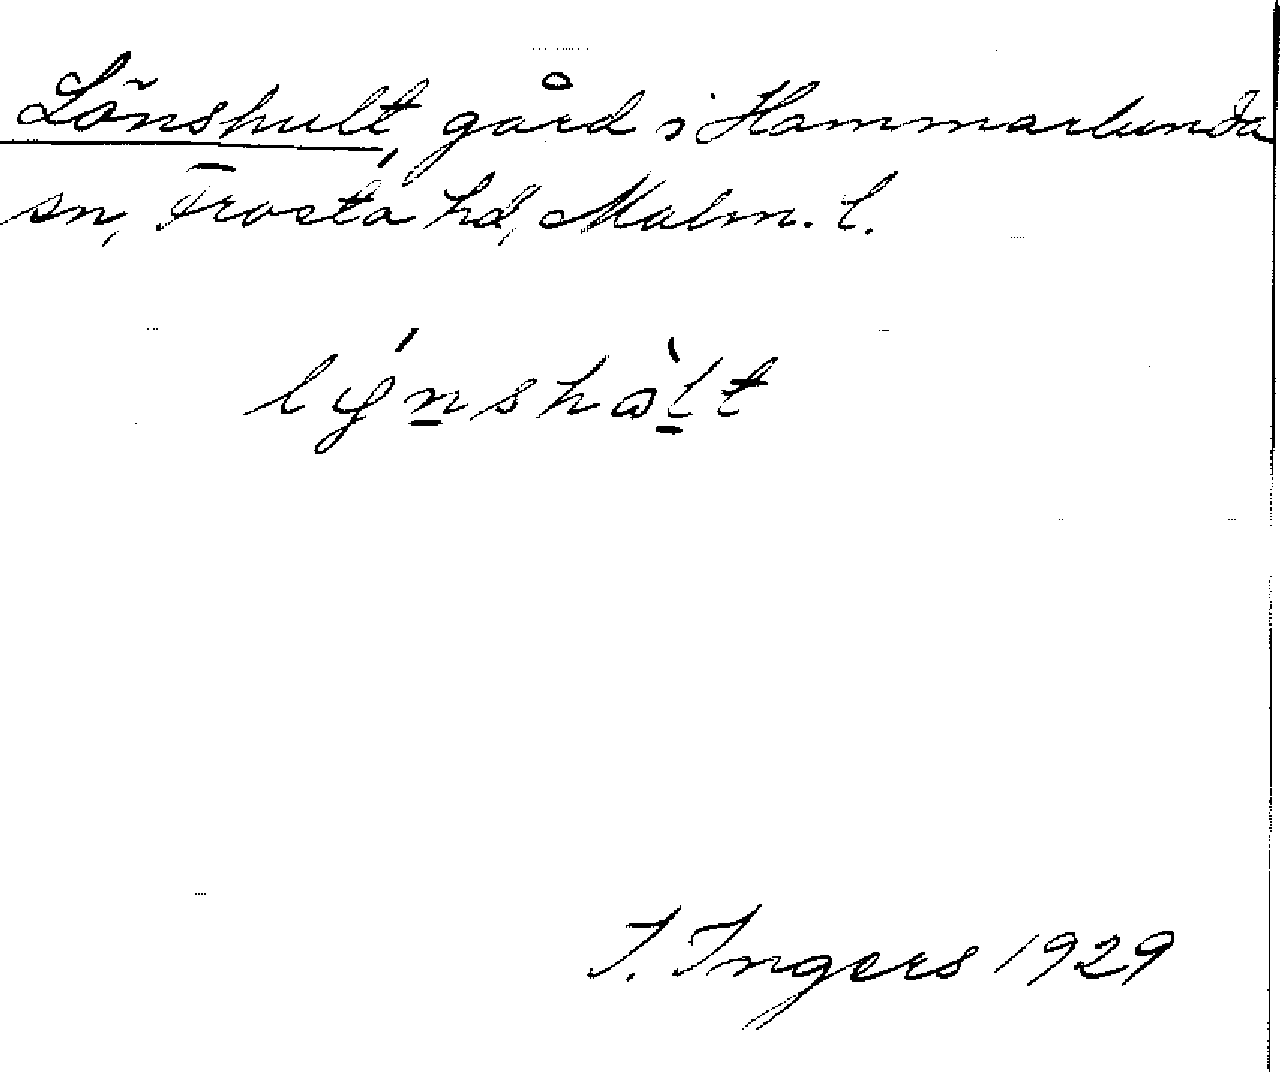 Lönshult, gård i Hammarlunda
sn, Frosta hd, Malm. l.
lǿnshàlt
I. Ingers 1929